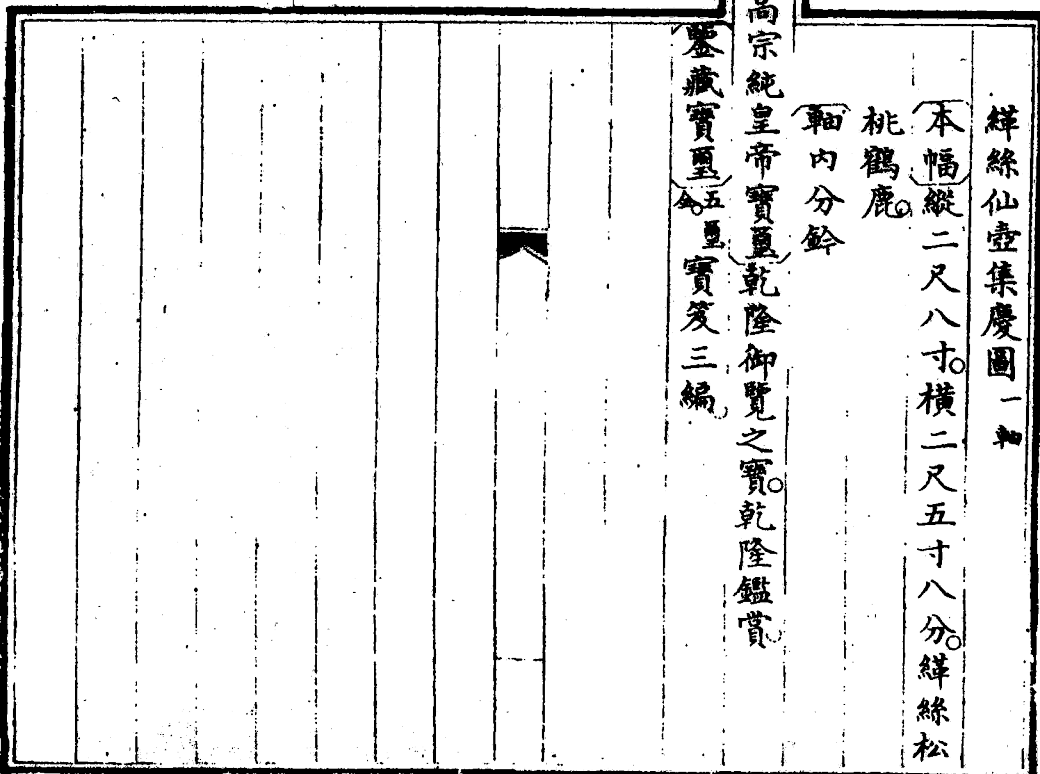 緙絲仙壺集慶圖一軸
本幅縱二尺八寸。橫二尺五寸八分。緙絲松
桃鶴鹿。
軸內分鈐
高宗純皇帝寶璽乾隆御覽之寶。乾隆鑑賞
鑒藏寶璽五璽全。寶笈三編